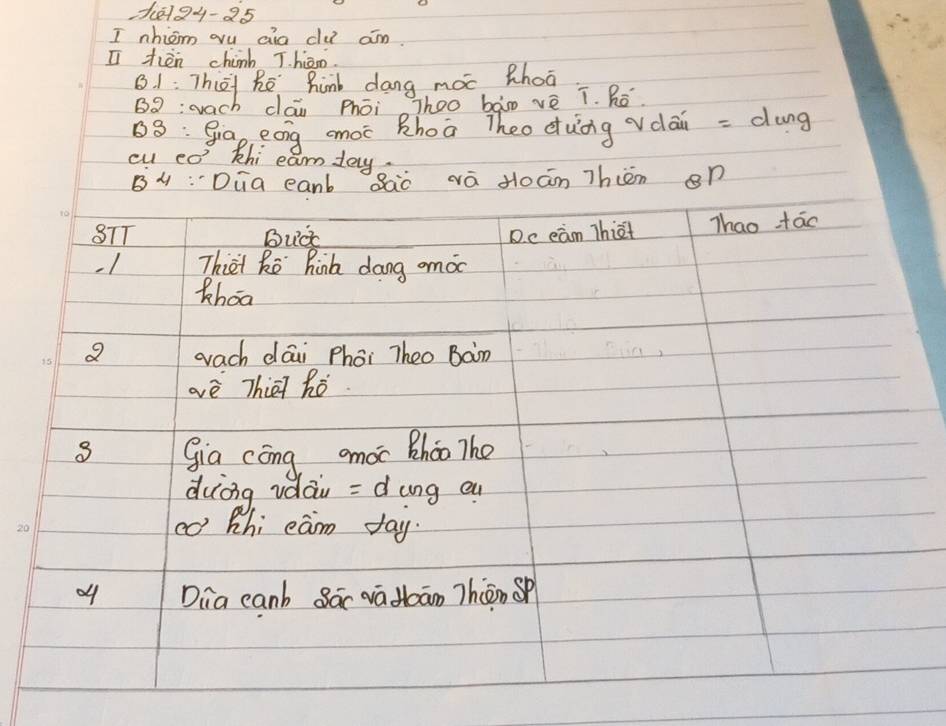 Tiết 24-25
I nhiệm vụ của dự án.
II tiến chình T.hiện.
B1: Thiết kế hình dạng móc khoá
B2: vạch dấu phôi Theo bản vẽ T. kế.
B3: Gia công móc khoá Theo đường vdấu = dụng
cụ cơ khí cầm tay.
B4: Dũa cạnh sắc và Hoàn Thiện SP
STT Bước DC cần Thiết Thao tác
1 Thiết kế hình dạng móc
khóa
2 vạch dấu phôi Theo Bản
vẽ Thiết kế
3 Gia công móc khóa The
đường vdấu = dụng cụ
cơ khí cầm tay.
4 Dũa cạnh sắc và Hoàn Thiện SP
10
15
20